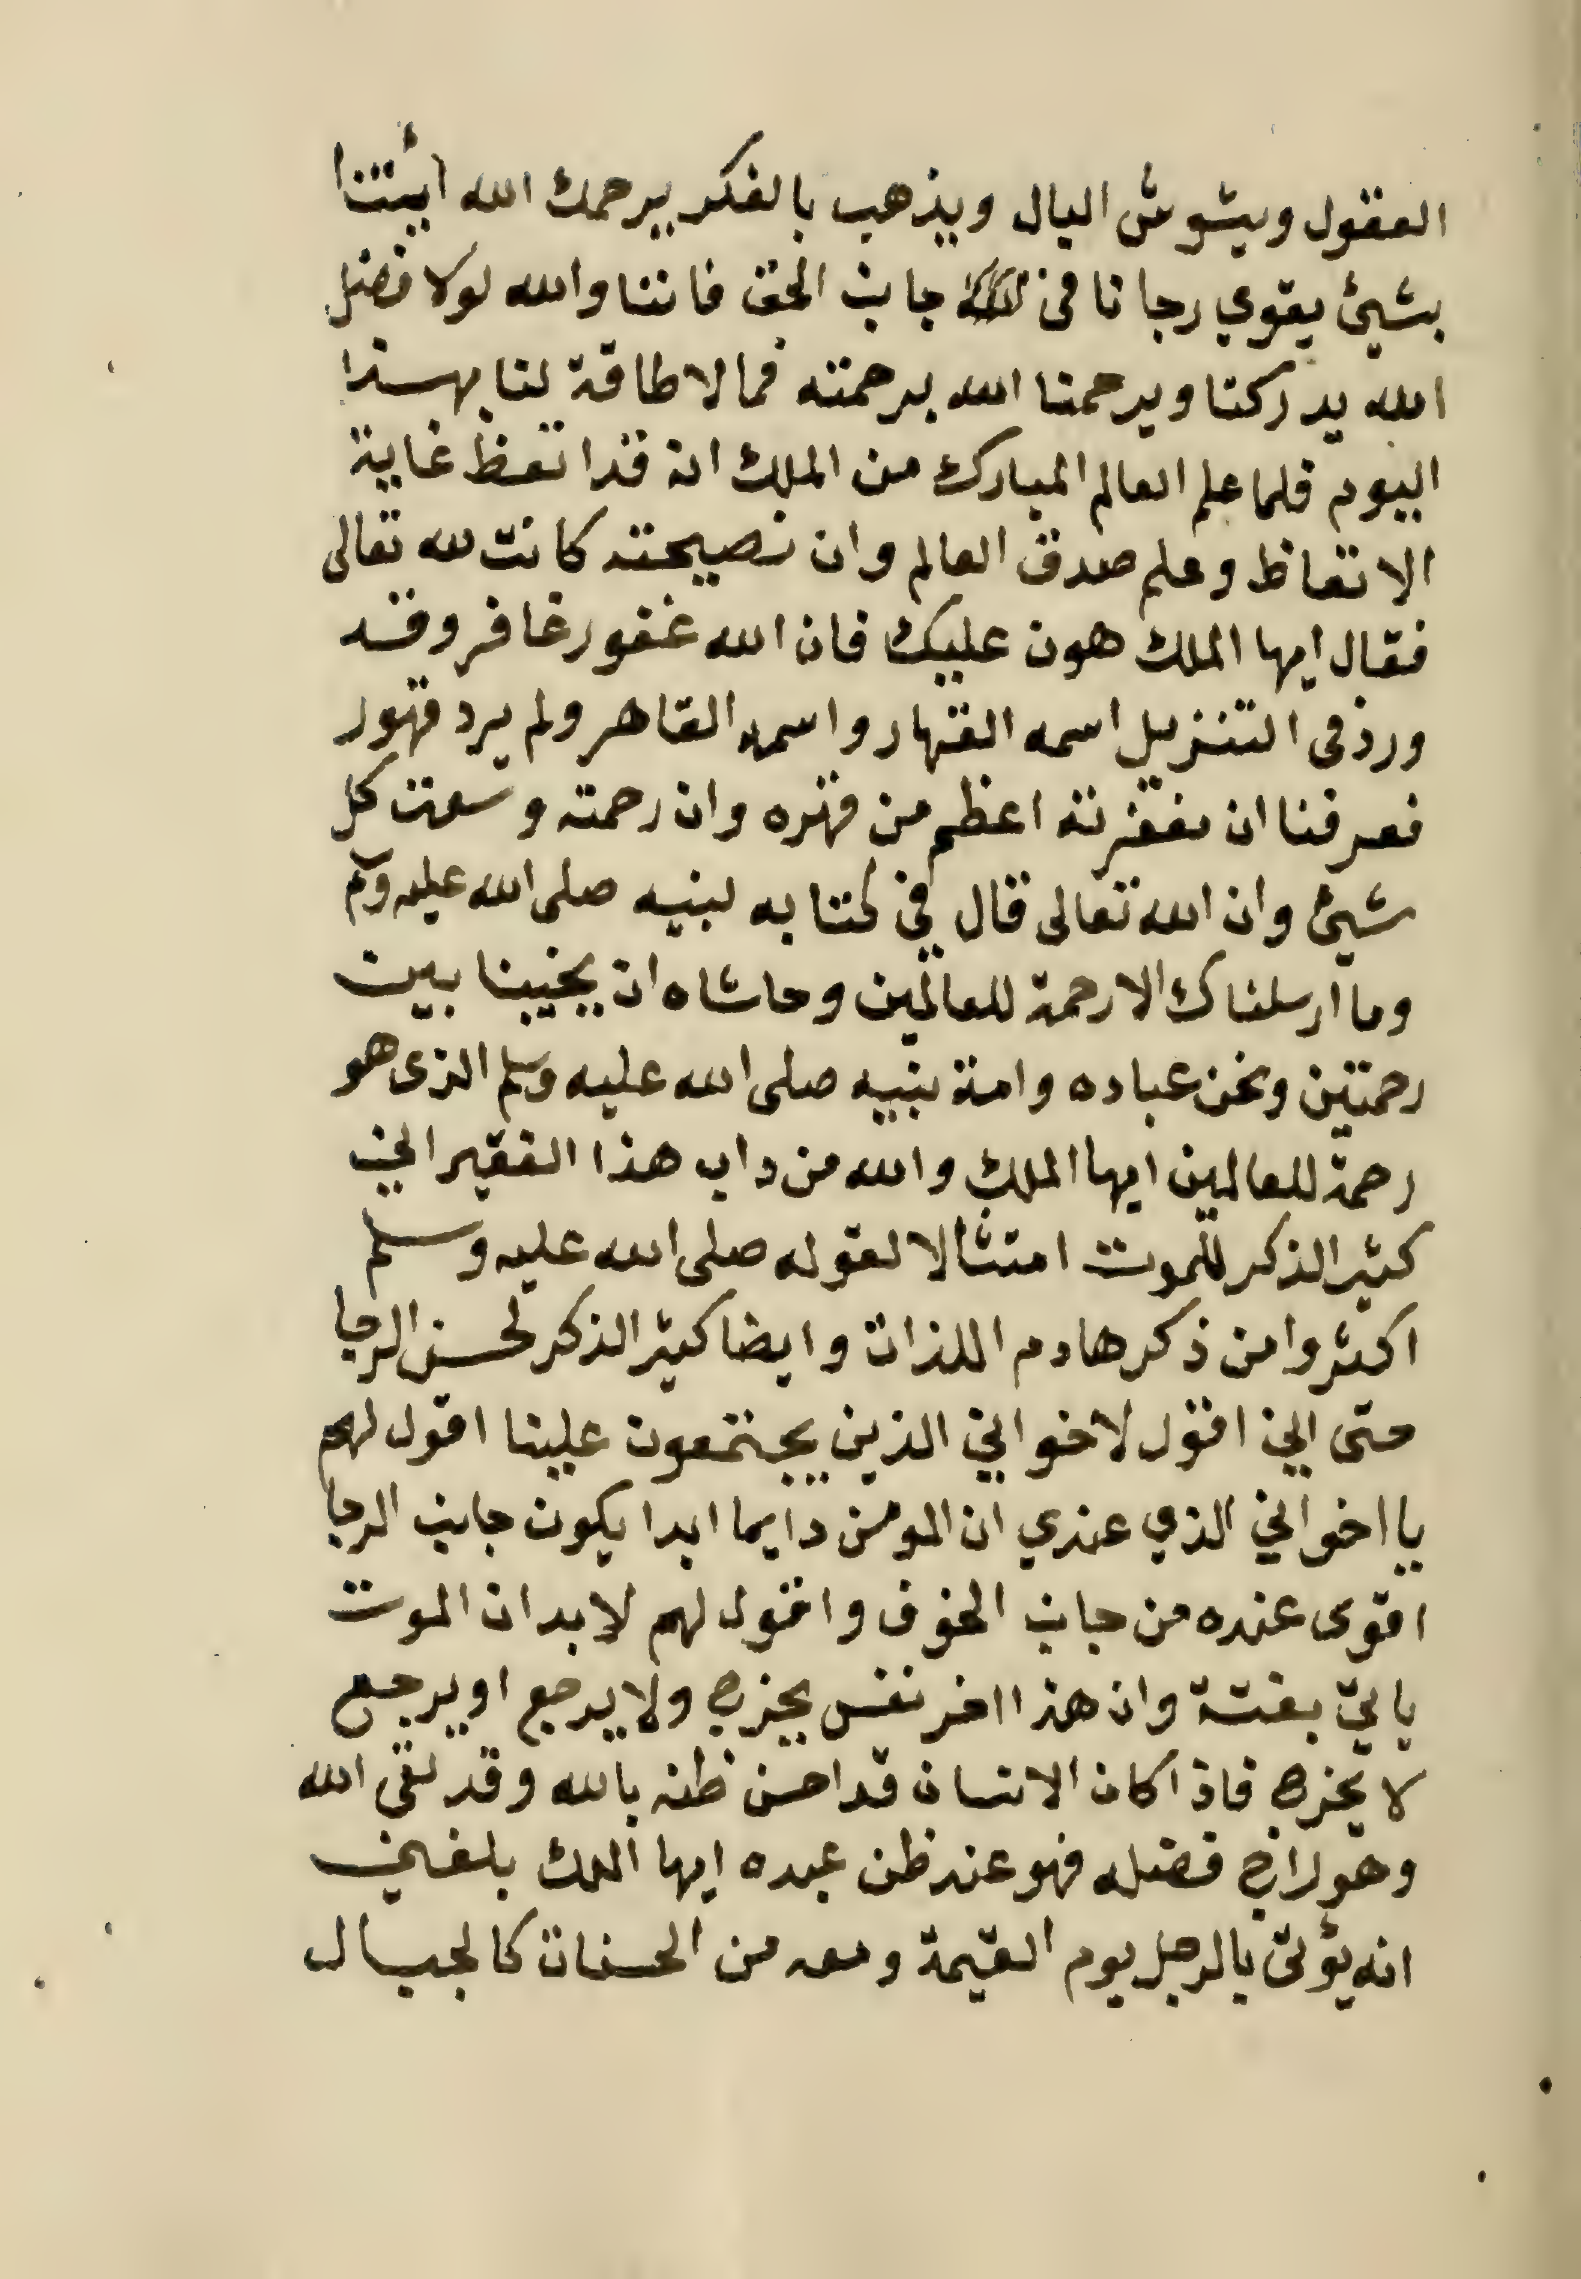 العقول ويشوش البال ويذهب بالفكر يرحمك الله ائيتنا
بشيئ يقوي رجانا في جانب الحق فاننا والله لولا فضل
الله يدركنا ويرحمنا الله برحمته فما لا طاقة لنا بهذا
اليوم فلما علم العالم المبارك من الملك انه قد اتعظ غاية
الاتعاظ وعلم صدق العالم وان نصيحته كانت لله تعالى
فقال ايها الملك هون عليك فان الله غفور غافر وقد
ورد في التنزيل اسمه القهار واسمه القاهر ولم يرد قهور
فعرفنا ان مغفرته اعظم من قهره وان رحمته وسعت كل
شيئ وان الله تعالى قال في كتابه لنبيه صلى الله عليه وسلم
وما ارسلناك الا رحمة للعالمين وحاشاه ان يخيبنا بين
رحمتين ونحن عباده وامة نبيه صلى الله عليه وسلم الذى هو
رحمة للعالمين ايها الملك والله من داب هذا الفقير اني
كثير الذكر للموت امتثالا لقوله صلى الله عليه وسلم
اكثروا من ذكر هادم اللذات وايضا كثير الذكر لحسن الرجا
حتى اني اقول لاخواني الذين يجتمعون علينا اقول لهم
يا اخواني الذي عندي ان المومن دايما ابدا يكون جانب الرجا
اقوى عنده من جانب الخوف واقول لهم لابد ان الموت
ياتي بغتة وان هذا اخر نفس يخرج ولا يرجع او يرجع
لا يخرج فاذا كان الانسان قد احسن ظنه بالله وقد لقى الله
وهو راج فضله فهو عند ظن عبده ايها الملك بلغني
انه يؤتى بالرجل يوم القيمة ومعه من الحسنات كالجبال